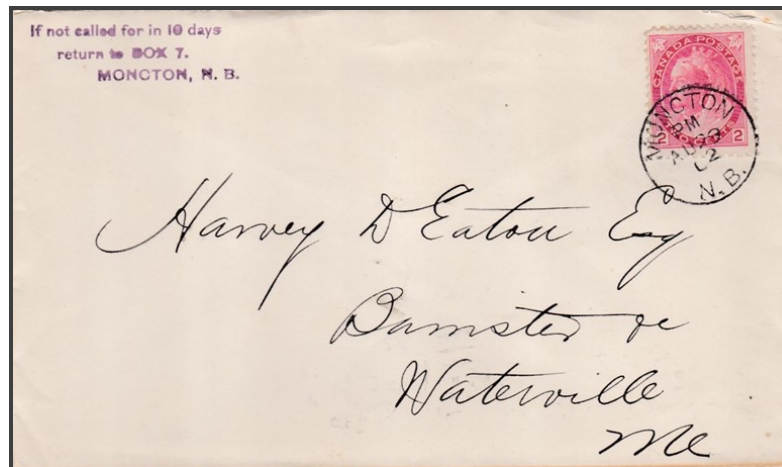 If not called for in 10 days
return to BOX 7.
MONCTON, N. B.
CANADA POSTAGE
2 2
MONCTON
PM
AU 29
N.B.
Harvey D Eaton Esq
Barrister &c
Waterville
Me